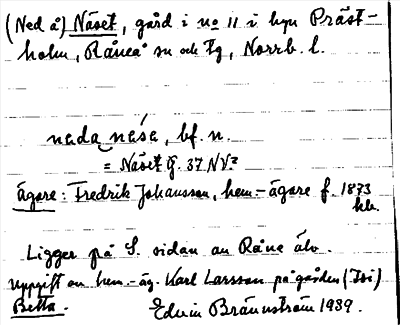 (Ned å) Näset, gård i no 11 i byn Präst-
holm, Råneå sn och tg, Norrb. l.
neda nésẹ, bf. n.
= Näset g. 37 NV²
Ägare: Fredrik Johansson, hem.-ägare f. 1873
Ligger på S. sidan av Råne älv.
Uppgift av hem.-äg. Karl Larsson på gården (Foi)
Betta. Edvin Brännström 1939.